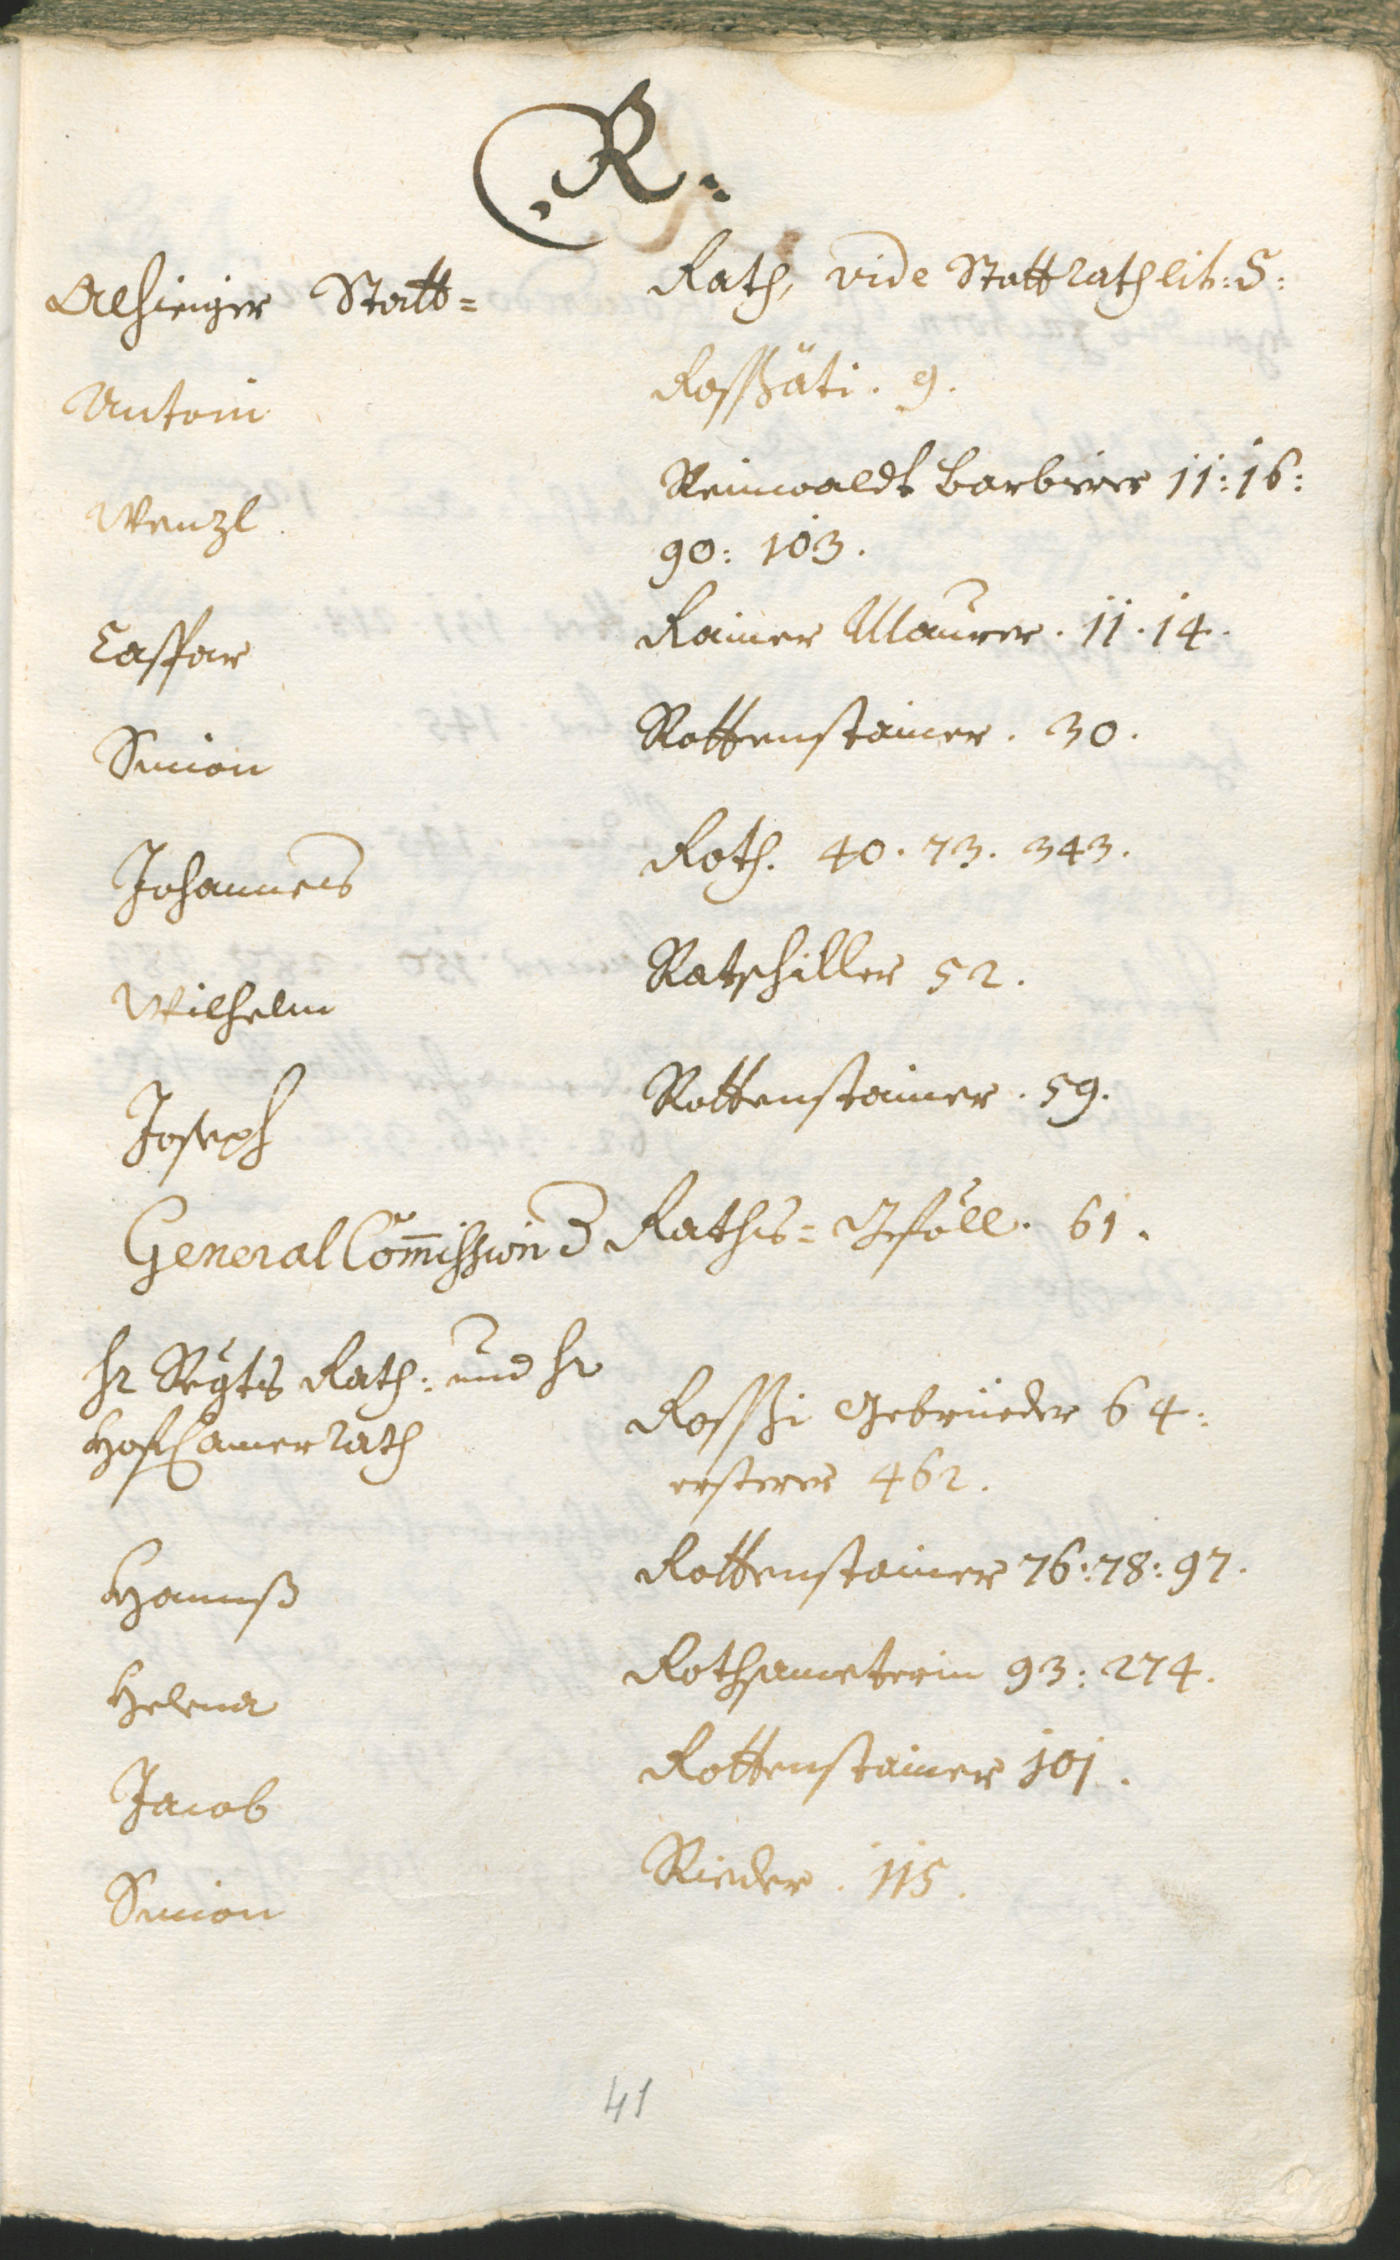 R.
Alhieiger Statt= Rath, vide Stattrath lit: S:
Antoni Rosshäti. 9.
Wenzl Reinwaldt Barbierer 11: 16:
90: 103.
Casspar Rainer Maurer. 11. 14.
Simon Rottenstainer. 30.
Johannes Roth. 40. 73. 343.
Wilhelm Ratschiller 52.
Joseph Rottenstainer. 59.
General Com̄ission Raths= Gföll. 61.
Hr Regts Rath: und Hr
Hof Camer rath Rosshi Gebrüeder 64:
ersterer 462.
Hannß Rottenstainer 76: 78: 97.
Helena 93: 274.
Jacob Rottenstainer 101.
Simon Rieder. 115.
41